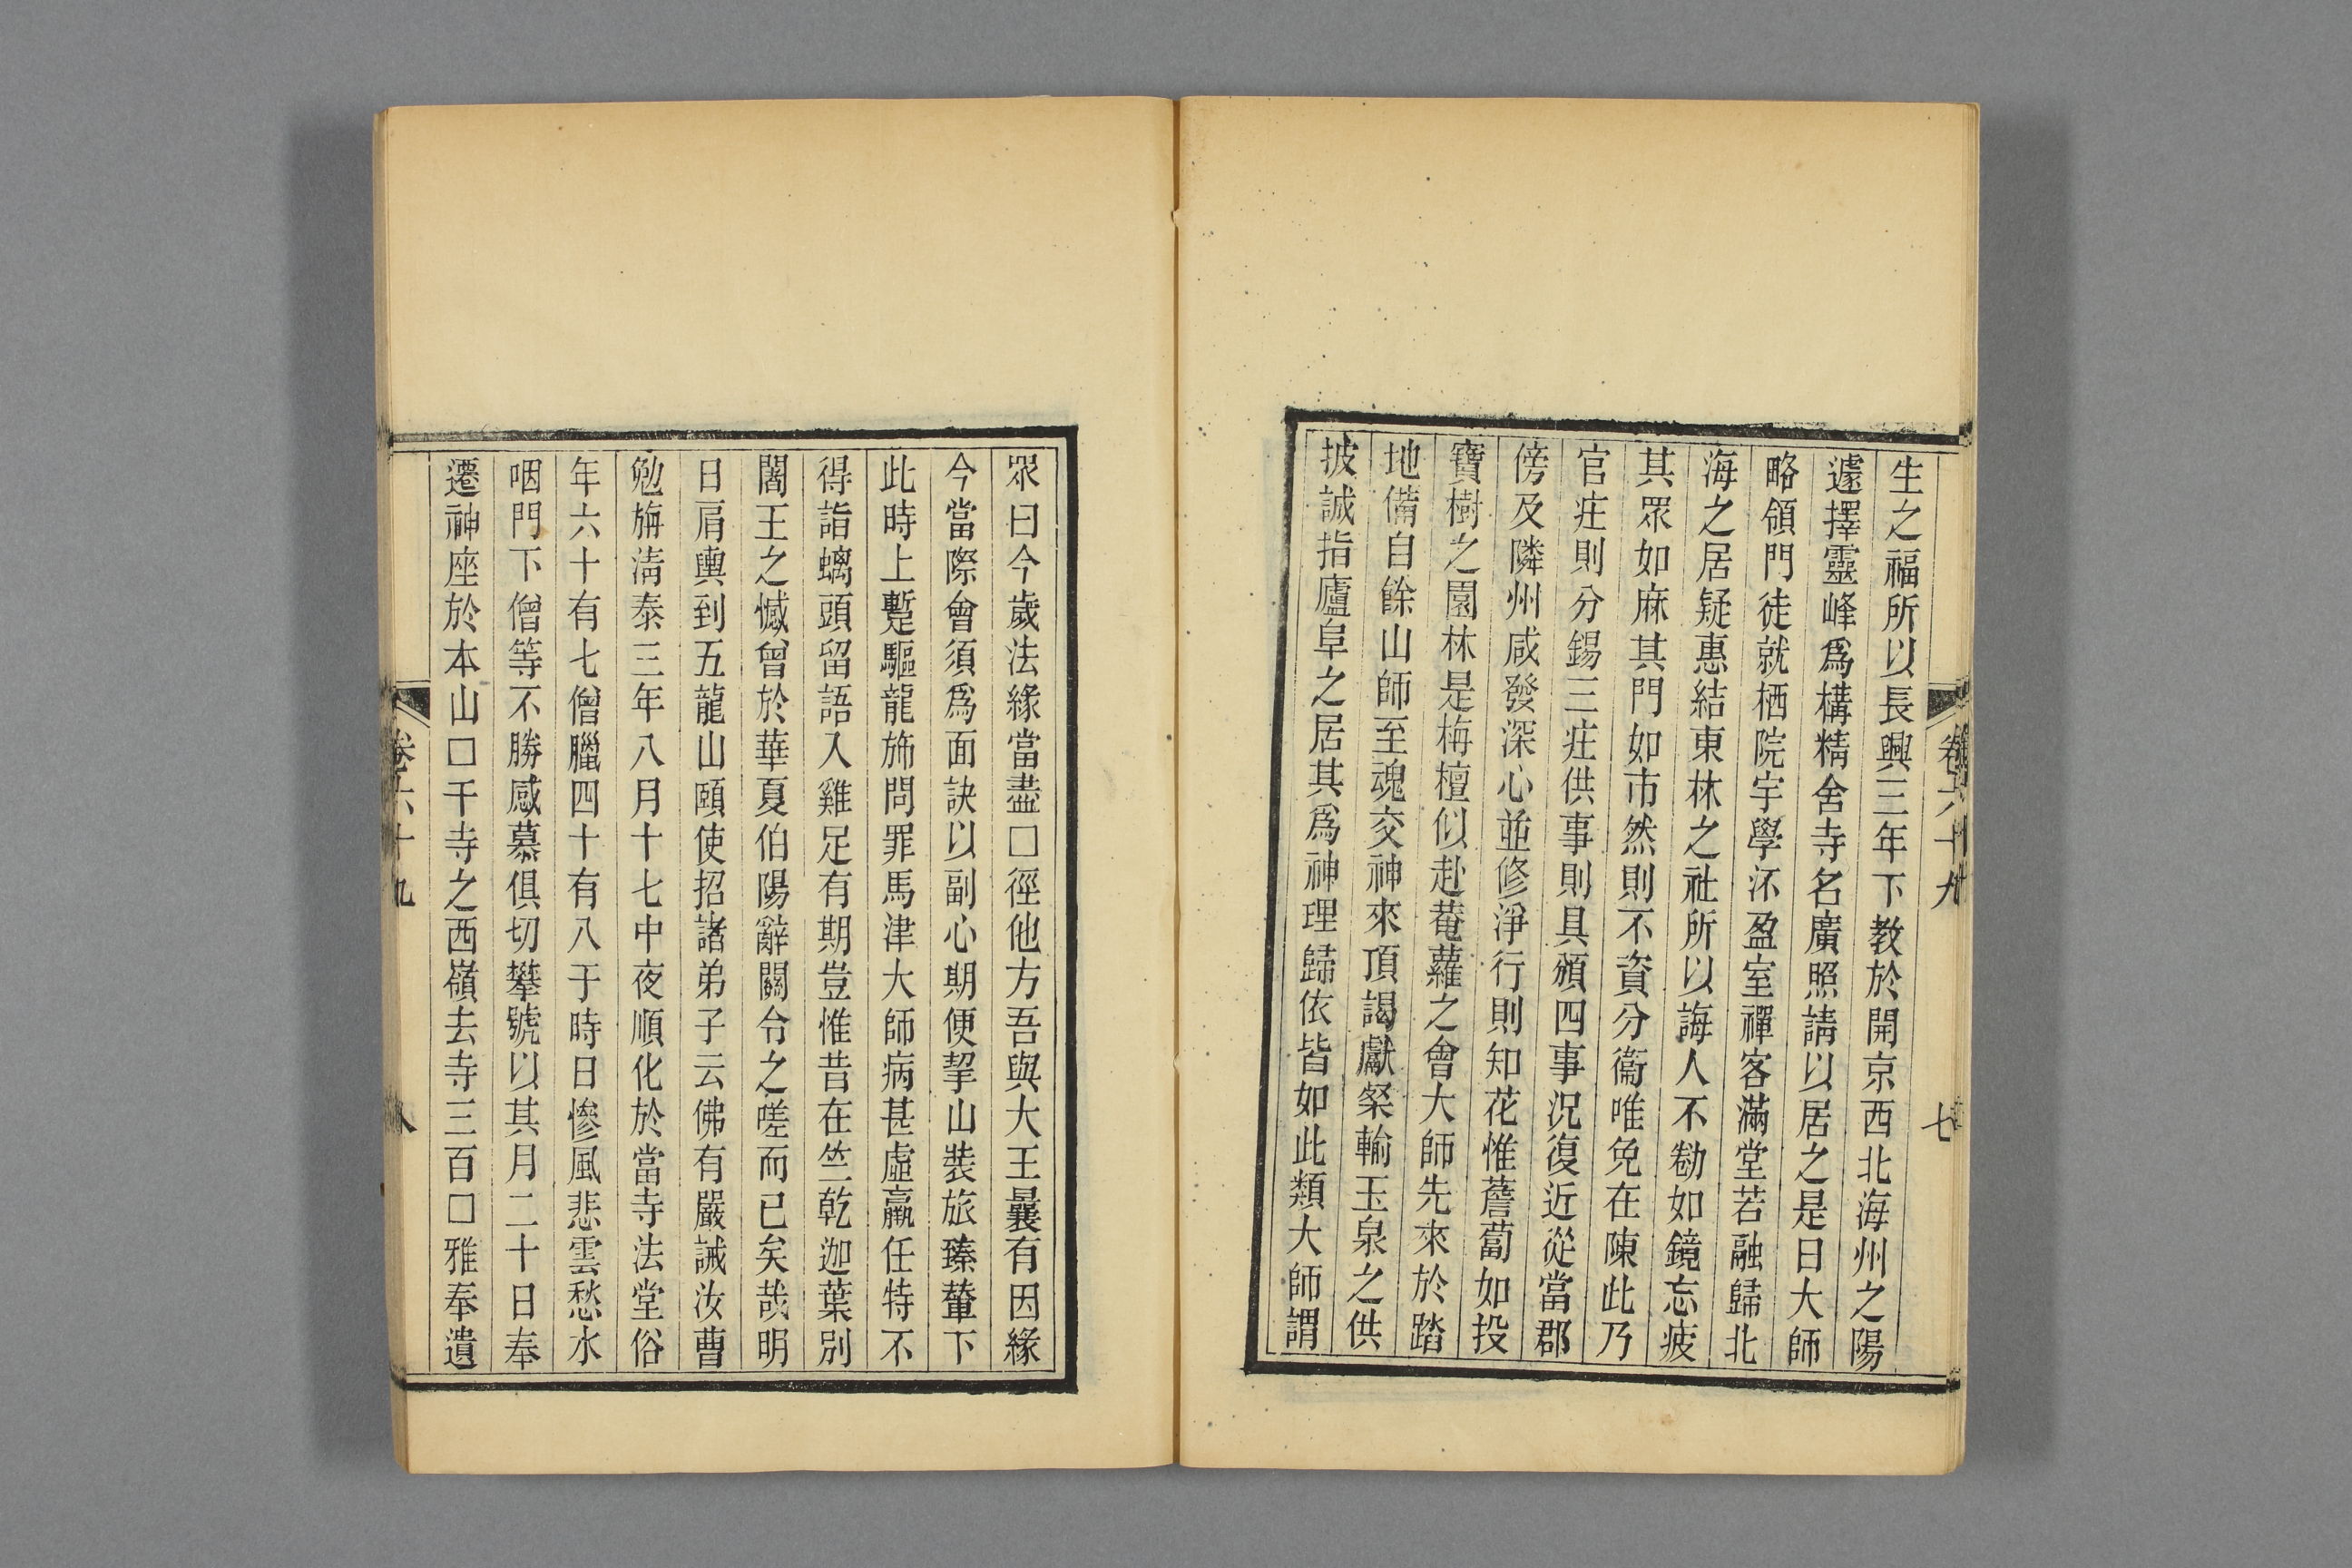 卷六十九
七
生之福所以長興三年下教於開京西北海州之陽
遽擇靈峰爲構精舍寺名廣照請以居之是日大師
略領門徒就栖院宇學㳅盈室禪客滿堂若融歸北
海之居疑惠結東林之社所以誨人不勌如鏡忘疲
其眾如麻其門如市然則不資分衞唯免在陳此乃
官莊則分錫三莊供事則具頒四事況復近從當郡
傍及隣州咸發深心並修淨行則知花惟薝蔔如投
寶樹之園林是梅檀似赴菴蘿之會大師先來於踏
地備自餘山師至魂交神來頂謁獻粲輸玉泉之供
披誠指廬阜之居其爲神理歸依皆如此類大師謂
眾曰今歲法緣當盡□徑他方吾與大王曩有因緣
今當際會須爲面訣以副心期便挈山裝旅臻輦下
此時上蹔驅龍旆問罪馬津大師病甚虛羸任特不
得詣螭頭留語入雞足有期豈惟昔在竺乾迦葉別
闍王之憾曾於華夏伯陽辭關令之嗟而已矣哉明
日肩輿到五龍山頤使招諸弟子云佛有嚴誡汝曹
勉旃淸泰三年八月十七中夜順化於當寺法堂俗
年六十有七僧臘四十有八于時日慘風悲雲愁水
咽門下僧等不勝感慕俱切攀號以其月二十日奉
遷神座於本山□干寺之西嶺去寺三百□雅奉遺
卷六十九
八